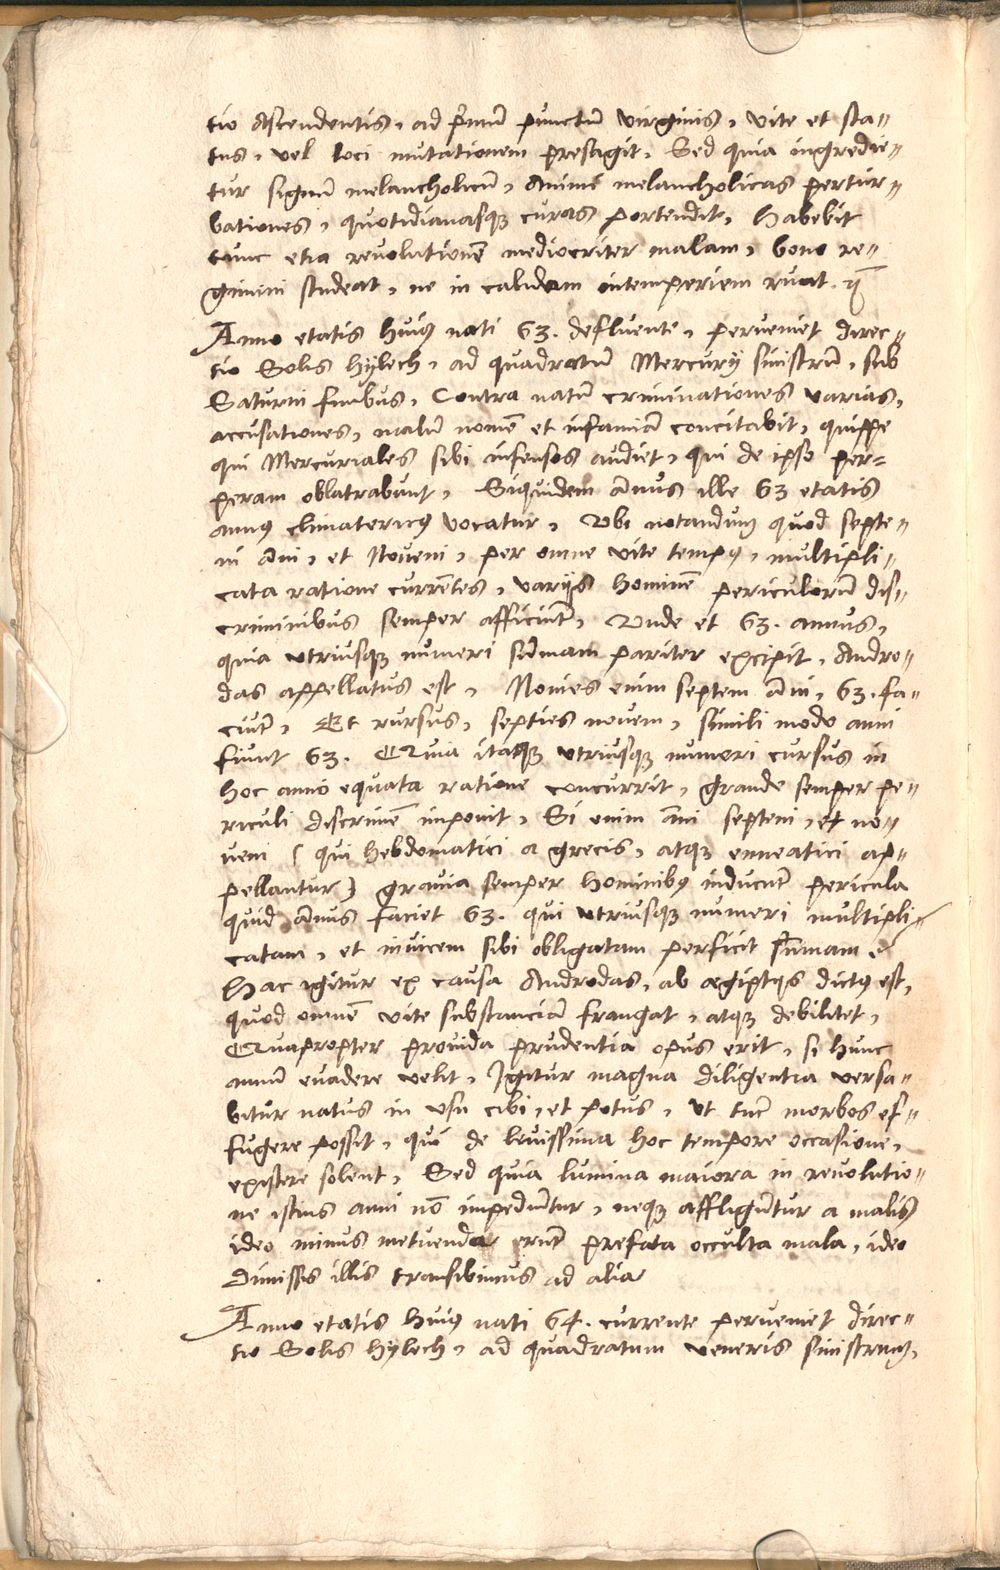 tio Ascendentis, ad primũ punctũ virginis, vite et sta-
tus, vel loci mutationem presagit. Sed quia ingredie-
tur signũ melancholicũ, Animi melancholicas pertur-
bationes, quotidianasqꝫ curas portendit, Habebit
tunc etiã revolutionẽ mediocriter malam, bono re-
gimini studeat, ne in calidam intemperiem ruat.
Anno etatis huiꝰ nati 63. defluente, perveniet direc-
tio Solis hylech, ad quadratũ Mercurij sinistrũ, sub
Saturni finibus, Contra natũ criminationes varias,
accusationes, malũ nomẽ et infamiã concitabit, quippe
qui Mercuriales sibi infensos audiet, qui de ipso per-
peram oblatrabunt, Siquidem ãnus ille 63 etatis
annꝰ climatericꝰ vocatur, Ubi notandum quod septe-
ni ãni, et Noveni, per omne vite tempꝰ, multipli-
cata ratione currẽtes, varijs hominẽ periculorũ dis-
criminibus semper afficiũt, Unde et 63. annus,
quia utriusqꝫ numeri sũmam pariter excipit, Andro-
das appellatus est, Novies enim septem ãni, 63. fa-
ciũt, Et rursus, septies novem, simili modo anni
fiunt 63. Quia itaqꝫ utriusqꝫ numeri cursus in
hoc anno equata ratione concurrit, grande semper pe-
riculi discrimẽ imponit, Si enim ãni septeni, et no-
veni (qui hebdomatici a grecis, atqꝫ enneatici ap-
pellantur) gravia semper hominibꝰ inducũt pericula
quid ãnus faciet 63. qui utriusqꝫ numeri multipli-
catam, et invicem sibi obligatam perficit sũmam?
Hac igitur ex causa Androdas, ab ægiptijs dictꝰ est,
quod omnẽ vite substanciã frangat, atqꝫ debilitet,
Quapropter provida prudentia opus erit, si hunc
annũ evadere velit, Igitur magna diligentia versa-
bitur natus in usu cibi, et potus, ut tũc morbos ef-
fugere possit, qui de levissima hoc tempore occasione,
existere solent, Sed quia lumina maiora in revolutio-
ne istius anni nõ impediũtur, neqꝫ affligũtur a malis
ideo minus metuenda erũt prefata occulta mala, ideo
dimissis illis transibimus ad alia
Anno etatis huiꝰ nati 64. currente perveniet direc-
tio Solis hylech, ad quadratum veneris sinistrum,